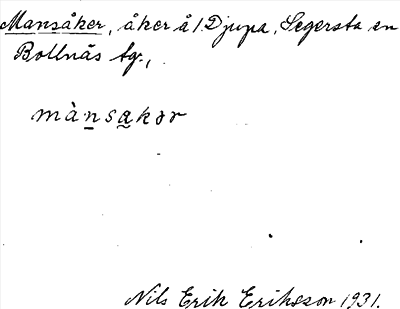 Mansåker, åker å 1 Djupa, Segersta en
Bollnäs tg.,
mànsakər
Nils Erik Eriksson 1931.